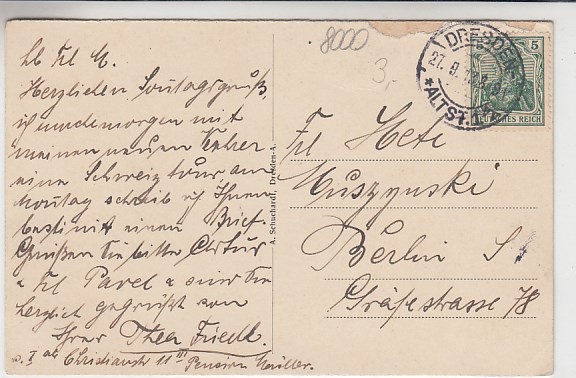 8000
3,-
DRESDEN
*ALTST.
5
DEUTSCHES REICH
Frl Hete
Muszynski
Berlin S
Gräfestrasse 78
A. Schuchardt, Dresden-A.
Lb Frl M.
Herzlichen Sonntagsgruß,
ich morgen mit
meinem neuen Verehrer
eine Schweiztour, am
Montag schreib ich Ihnen
bestimmt einen Brief.
Grüßen Sie bitte Artur
u Frl Pavel u sein Sie
herzlich gegrüßt von
Ihrer Thea Friedl.
Christianstr 11 III Pension Müller.